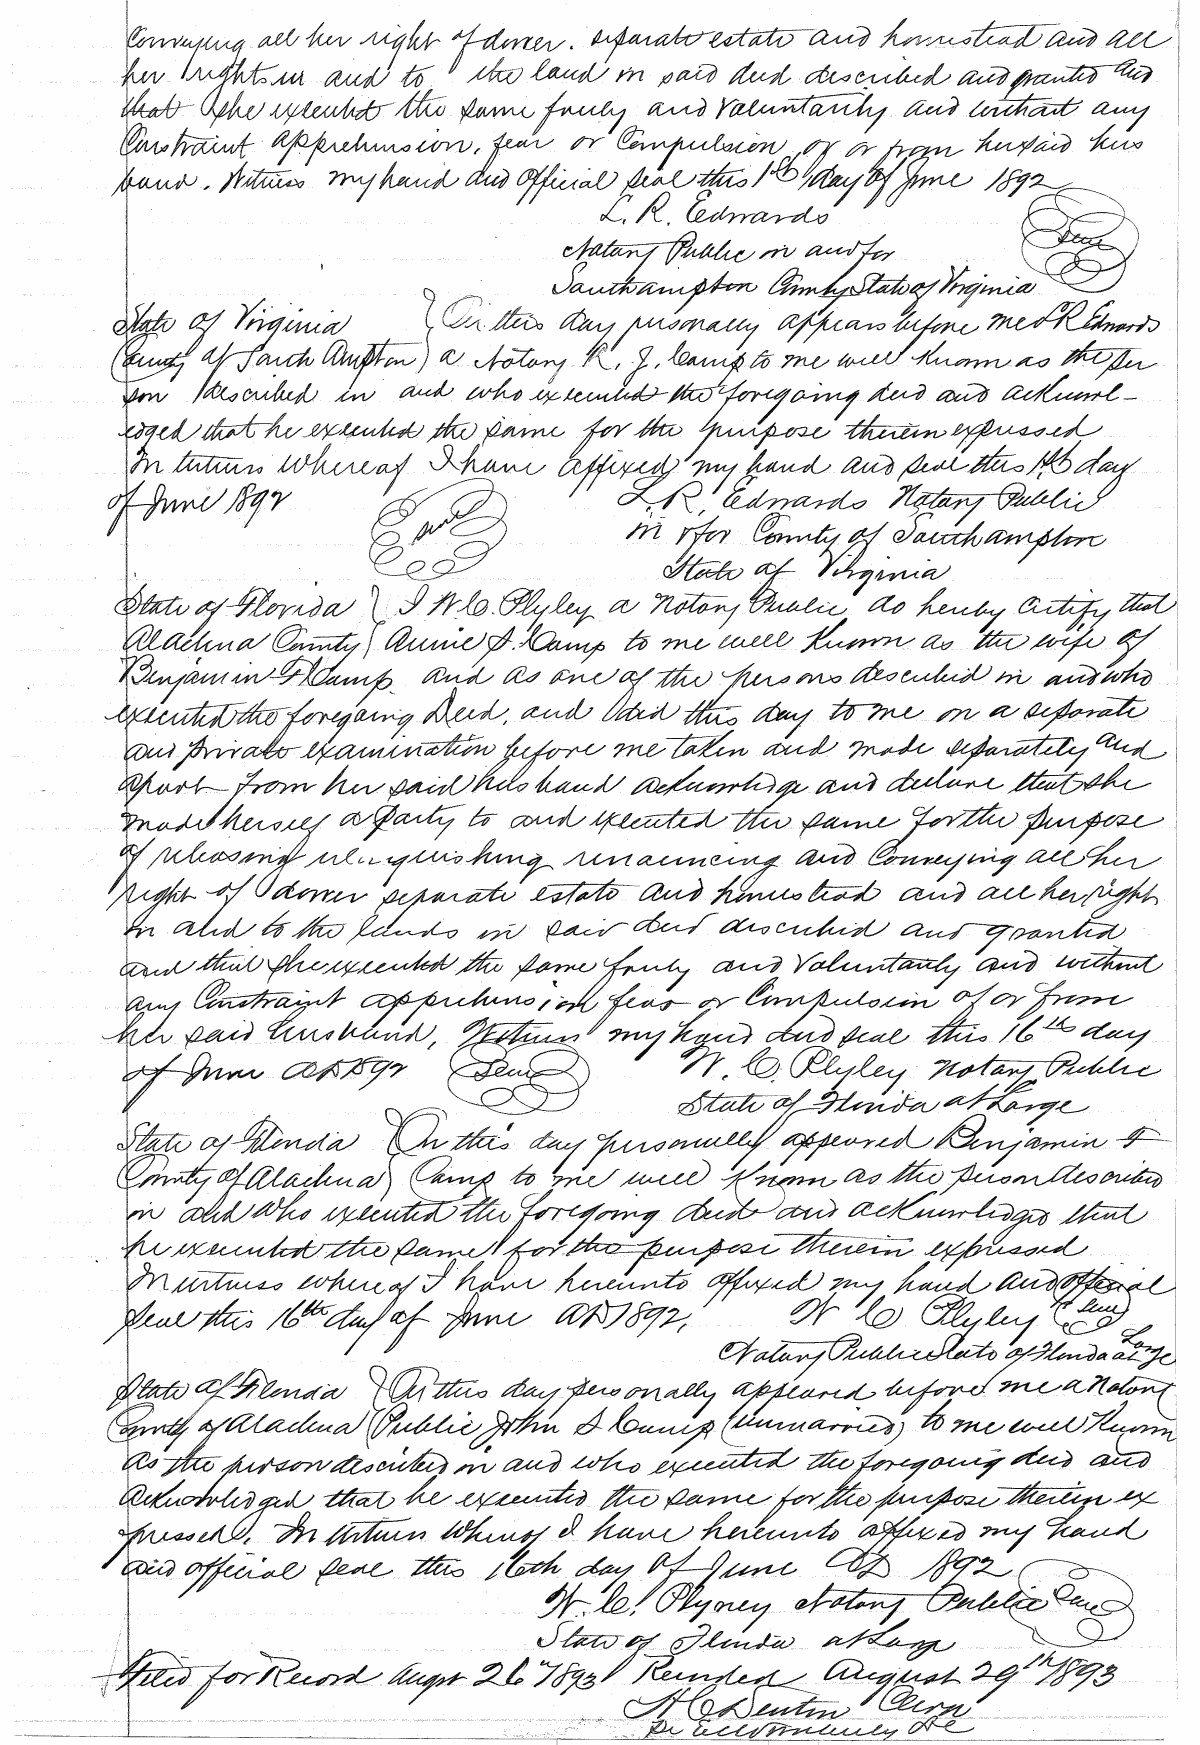 Conveying all her right of dower. separate estate and homestead and all
her rights in and to the land in said deed described and granted and
that she executed the same freely and voluntarily and without any
Constraint apprehension, fear or Compulsion of or from her said hus
band. Witness my hand and official seal this 1st day of June 1892
L. R. Edwards
Notary Public in and for
Seal
Southampton County State of Virginia
State of Virginia } On this day personally appears before me L R Edwards
County of South Ampton) a Notary R. J. Camp to me well known as the per
son described in and who executed the foregoing deed and acknowl-
edged that he executed the same for the purpose therein expressed
In witness whereof I have affixed my hand and seal this 1st day
of June 1892 Seal L. R. Edwards Notary Public
in & for County of Southampton
State of Virginia
State of Florida } I W. C. Plyley a Notary Public do hereby certify that
Alachua County } Annie S. Camp to me well known as the wife of
Benjamin F Camp and as one of the persons described in and who
executed the foregoing Deed, and did this day to me on a separate
and private examination before me taken and made separately and
apart from her said husband acknowledge and declare that she
made herself a Party to and executed the same for the purpose
of releasing relinquishing renouncing and Conveying all her
right of dower separate estate and homestead and all her right
in and to the lands in said deed described and granted
and that she executed the same freely and voluntarily and without
any Constraint apprehension fear or Compulsion of or from
her said husband, Witness my hand and seal this 16th day
of June AD 1892 Seal W. C. Plyley Notary Public
State of Florida at Large
State of Florida } On this day personally appeared Benjamin F
County of Alachua } Camp to me well known as the person described
in and who executed the foregoing deed and acknowledged that
he executed the same for the purpose therein expressed
In witness whereof I have hereunto affixed my hand and official
Seal this 16th day of June AD 1892. W C Plyley Seal
Notary Public State of Florida at Large
State of Florida } On this day personally appeared before me a Notary
County of Alachua } Public John S Camp (unmarried) to me well known
as the person described in and who executed the foregoing deed and
acknowledged that he executed the same for the purpose therein ex
pressed. In witness whereof I have hereunto affixed my hand
and official seal this 16th day of June AD 1892
W. C. Plyney Notary Public Seal
State of Florida at Large
Filed for Record Augst 26" 1893 Recorded August 29th 1893
H C Denton Clerk